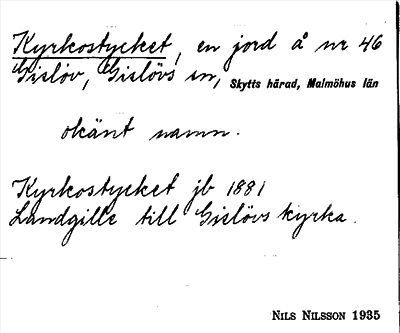 Kyrkostycket, en jord å nr 46
Gislöv, Gislövs sn, Skytts härad, Malmöhus län
okänt namn.
Kyrkostycket jb 1881
Landgille till Gislövs kyrka.
NILS NILSSON 1935